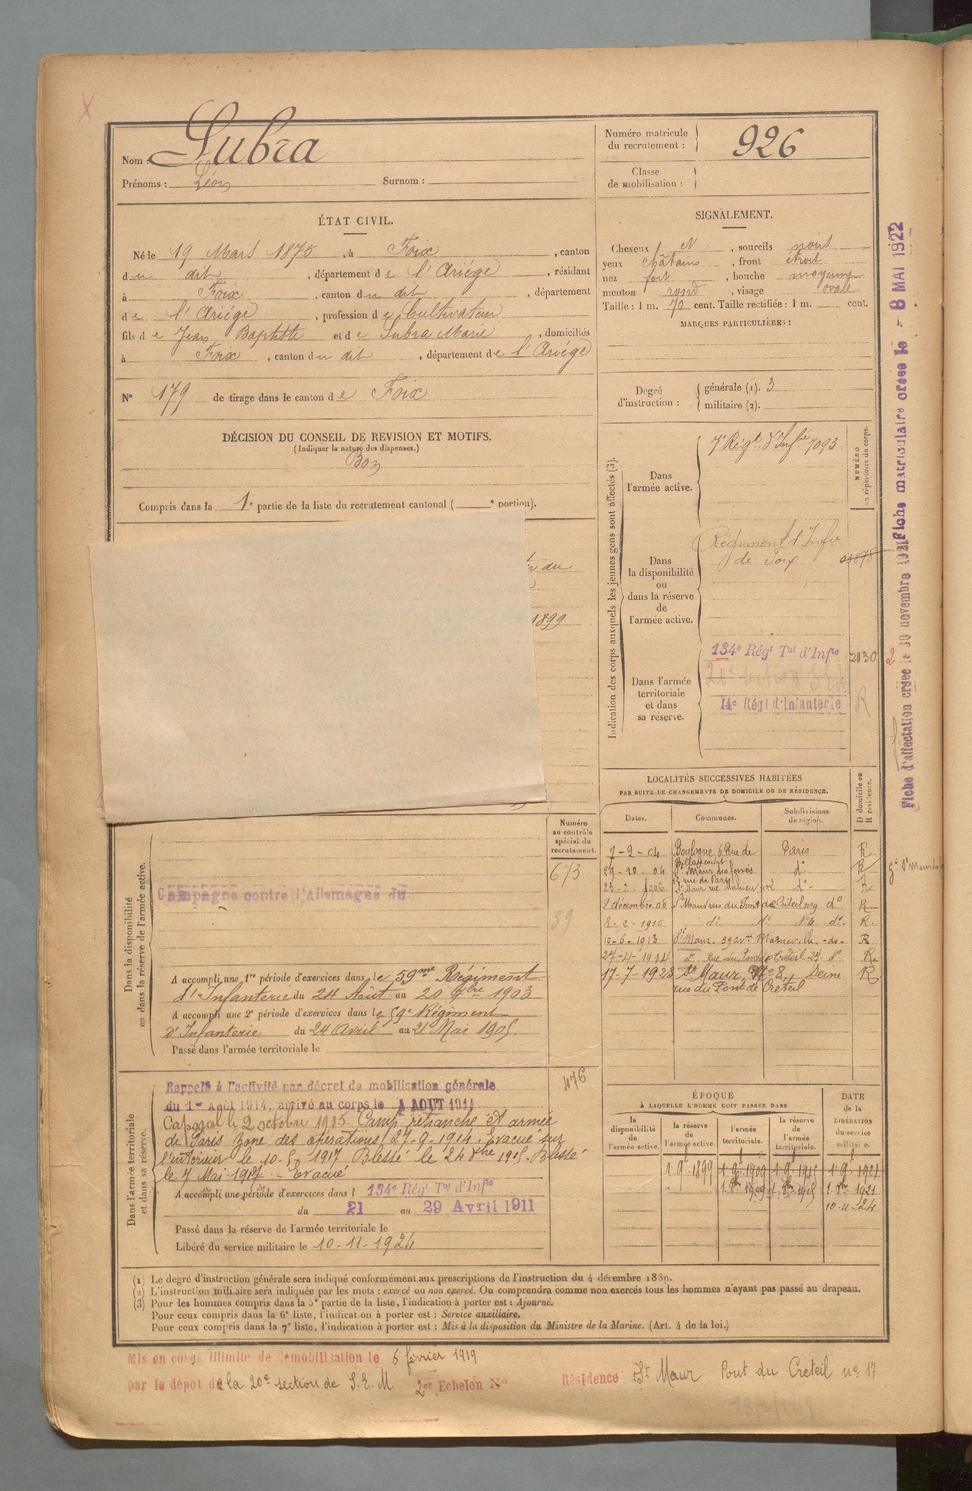 Nom : Subra
Prénoms : Léon Surnom :
Numéro matricule du recrutement : 926
Classe de mobilisation :
ÉTAT CIVIL.
Né le 19 Mars 1875, à Foix, canton
du dit, département de l'Ariége, résidant
à Foix, canton du dit, département
de l'Ariége, profession de Cultivateur
fils de Jean Baptiste et de Subra Marie, domiciliés
à Foix, canton du dit, département de l'Ariége
N° 179 de tirage dans le canton de Foix
DÉCISION DU CONSEIL DE REVISION ET MOTIFS.
(Indiquer la nature des dispenses.)
Bon
Compris dans la 1e partie de la liste du recrutement cantonal ( e portion).
SIGNALEMENT.
Cheveux N, sourcils noirs
yeux châtains, front étroit
nez fort, bouche moyenne
menton rond, visage ovale
Taille : 1 m. 70 cent. Taille rectifiée : 1 m. cent.
MARQUES PARTICULIÈRES :
Degré d'instruction : générale (1). 3
militaire (2).
Indication des corps auxquels les jeunes gens sont affectés (3).
NUMÉRO au répertoire du corps.
Dans l'armée active. 7e Régt d'Infie 7093
Dans la disponibilité ou dans la réserve de l'armée active. Régiment d'Infie de Foix
Dans l'armée territoriale et dans sa réserve. 134e Régt Tal d'Infie 2130
14e Régt d'Infanterie
R
du
1899
LOCALITÉS SUCCESSIVES HABITÉES
PAR SUITE DE CHANGEMENTS DE DOMICILE OU DE RÉSIDENCE.
Dates. Communes. Subdivisions de région. D domicile ou R résidence.
7-2-04 Boulogne, 6 Rue de Paris R
29-10-04 St Maur des fossés do R
rue de Paris
23-2-1906 St Maur rue do R
2 décembre 06 St Maur rue du Pont de Créteil do R
8-2-1910 do do do R.
12-6-1913 St Maur 59 avenue do R
27-4-1914 do Rue du Pont de Créteil do R
17-7-1923 St Maur, No 8, Seine R
rue du Pont de Créteil
Dans la disponibilité ou dans la réserve de l'armée active.
Numéro au contrôle spécial du recrutement.
673
39
Campagne contre l'Allemagne du
A accompli une 1re période d'exercices dans le 59me Régiment
d'Infanterie du 24 Août au 20 7bre 1903
A accompli une 2e période d'exercices dans le 59e Régiment
d'Infanterie du 24 Avril au 21 Mai 1905.
Passé dans l'armée territoriale le
Dans l'armée territoriale et dans sa réserve.
476
Rappelé à l'activité par décret de mobilisation générale
du 1er Août 1914, arrivé au corps le 4 AOUT 1914
Caporal le 2 octobre 1915. Camp retranché et armée
de Paris zone des opérations 27-9-1914. Evacué sur
l'intérieur le 10-5-1917 Blessé le 24 1915. Blessé
le 7 Mai 1917 - Evacué
A accompli une période d'exercices dans l 134e Régt Tal d'Infie
du 21 au 29 Avril 1911
Passé dans la réserve de l'armée territoriale le
Libéré du service militaire le 10-11-1924
ÉPOQUE
À LAQUELLE L'HOMME DOIT PASSER DANS
la disponibilité de l'armée active. la réserve de l'armée active. l'armée territoriale. la réserve de l'armée territoriale.
DATE de la LIBÉRATION du service militaire.
1 9e 1899 1 9e 1909 1 9e 1915 1 9e 1921
1 8bre 1909 1 8bre 1915 1 8bre 1921
10-11-24
(1) Le degré d'instruction générale sera indiqué conformément aux prescriptions de l'instruction du 4 décembre 1889.
(2) L'instruction militaire sera indiquée par les mots : exercé ou non exercé. On comprendra comme non exercés tous les hommes n'ayant pas passé au drapeau.
(3) Pour les hommes compris dans la 5e partie de la liste, l'indication à porter est : Ajourné.
Pour ceux compris dans la 6e liste, l'indication à porter est : Service auxiliaire.
Pour ceux compris dans la 7e liste, l'indication à porter est : Mis à la disposition du Ministre de la Marine. (Art. 4 de la loi.)
Mis en congé illimité de démobilisation le 6 février 1919
par le dépôt de la 20e section de S.E.M 2er Echelon N° Résidence St Maur Pont du Creteil no 17
Fiche d'affectation créée le 30 novembre 1921 Fiche matriculaire créée le - 8 MAI 1922
2